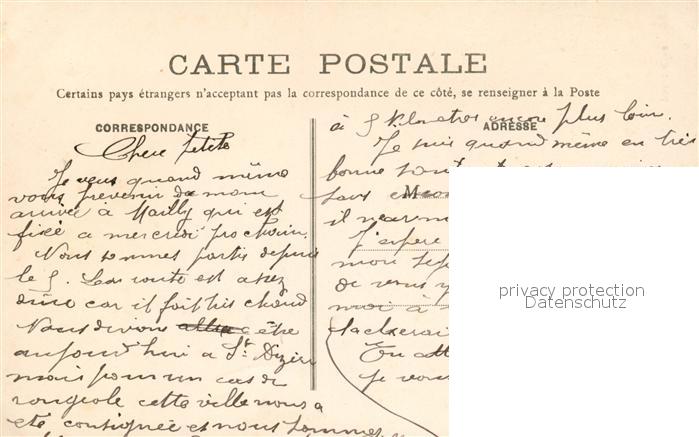 CARTE POSTALE
Certains pays étrangers n'acceptant pas la correspondance de ce côté, se renseigner à la Poste
CORRESPONDANCE
Chère petite
Je veux quand même
vous prévenir de mon
arrivée à Mailly qui est
fixé a mercredi prochain.
Nous sommes partis depuis
le 5. La route est assez
dure car il fait très chaud
Nous devions être
aujourd'hui a St Dizier
mais pour un cas de
rougeole cette ville nous a
été consignée et nous sommes
à 5 Kilomètres encore plus loin.
ADRESSE
Je suis quand même en très
bonne santé
M
il
J'espère
mon
de vous
moi à
tacherai
En
je vous
privacy protection
Datenschutz